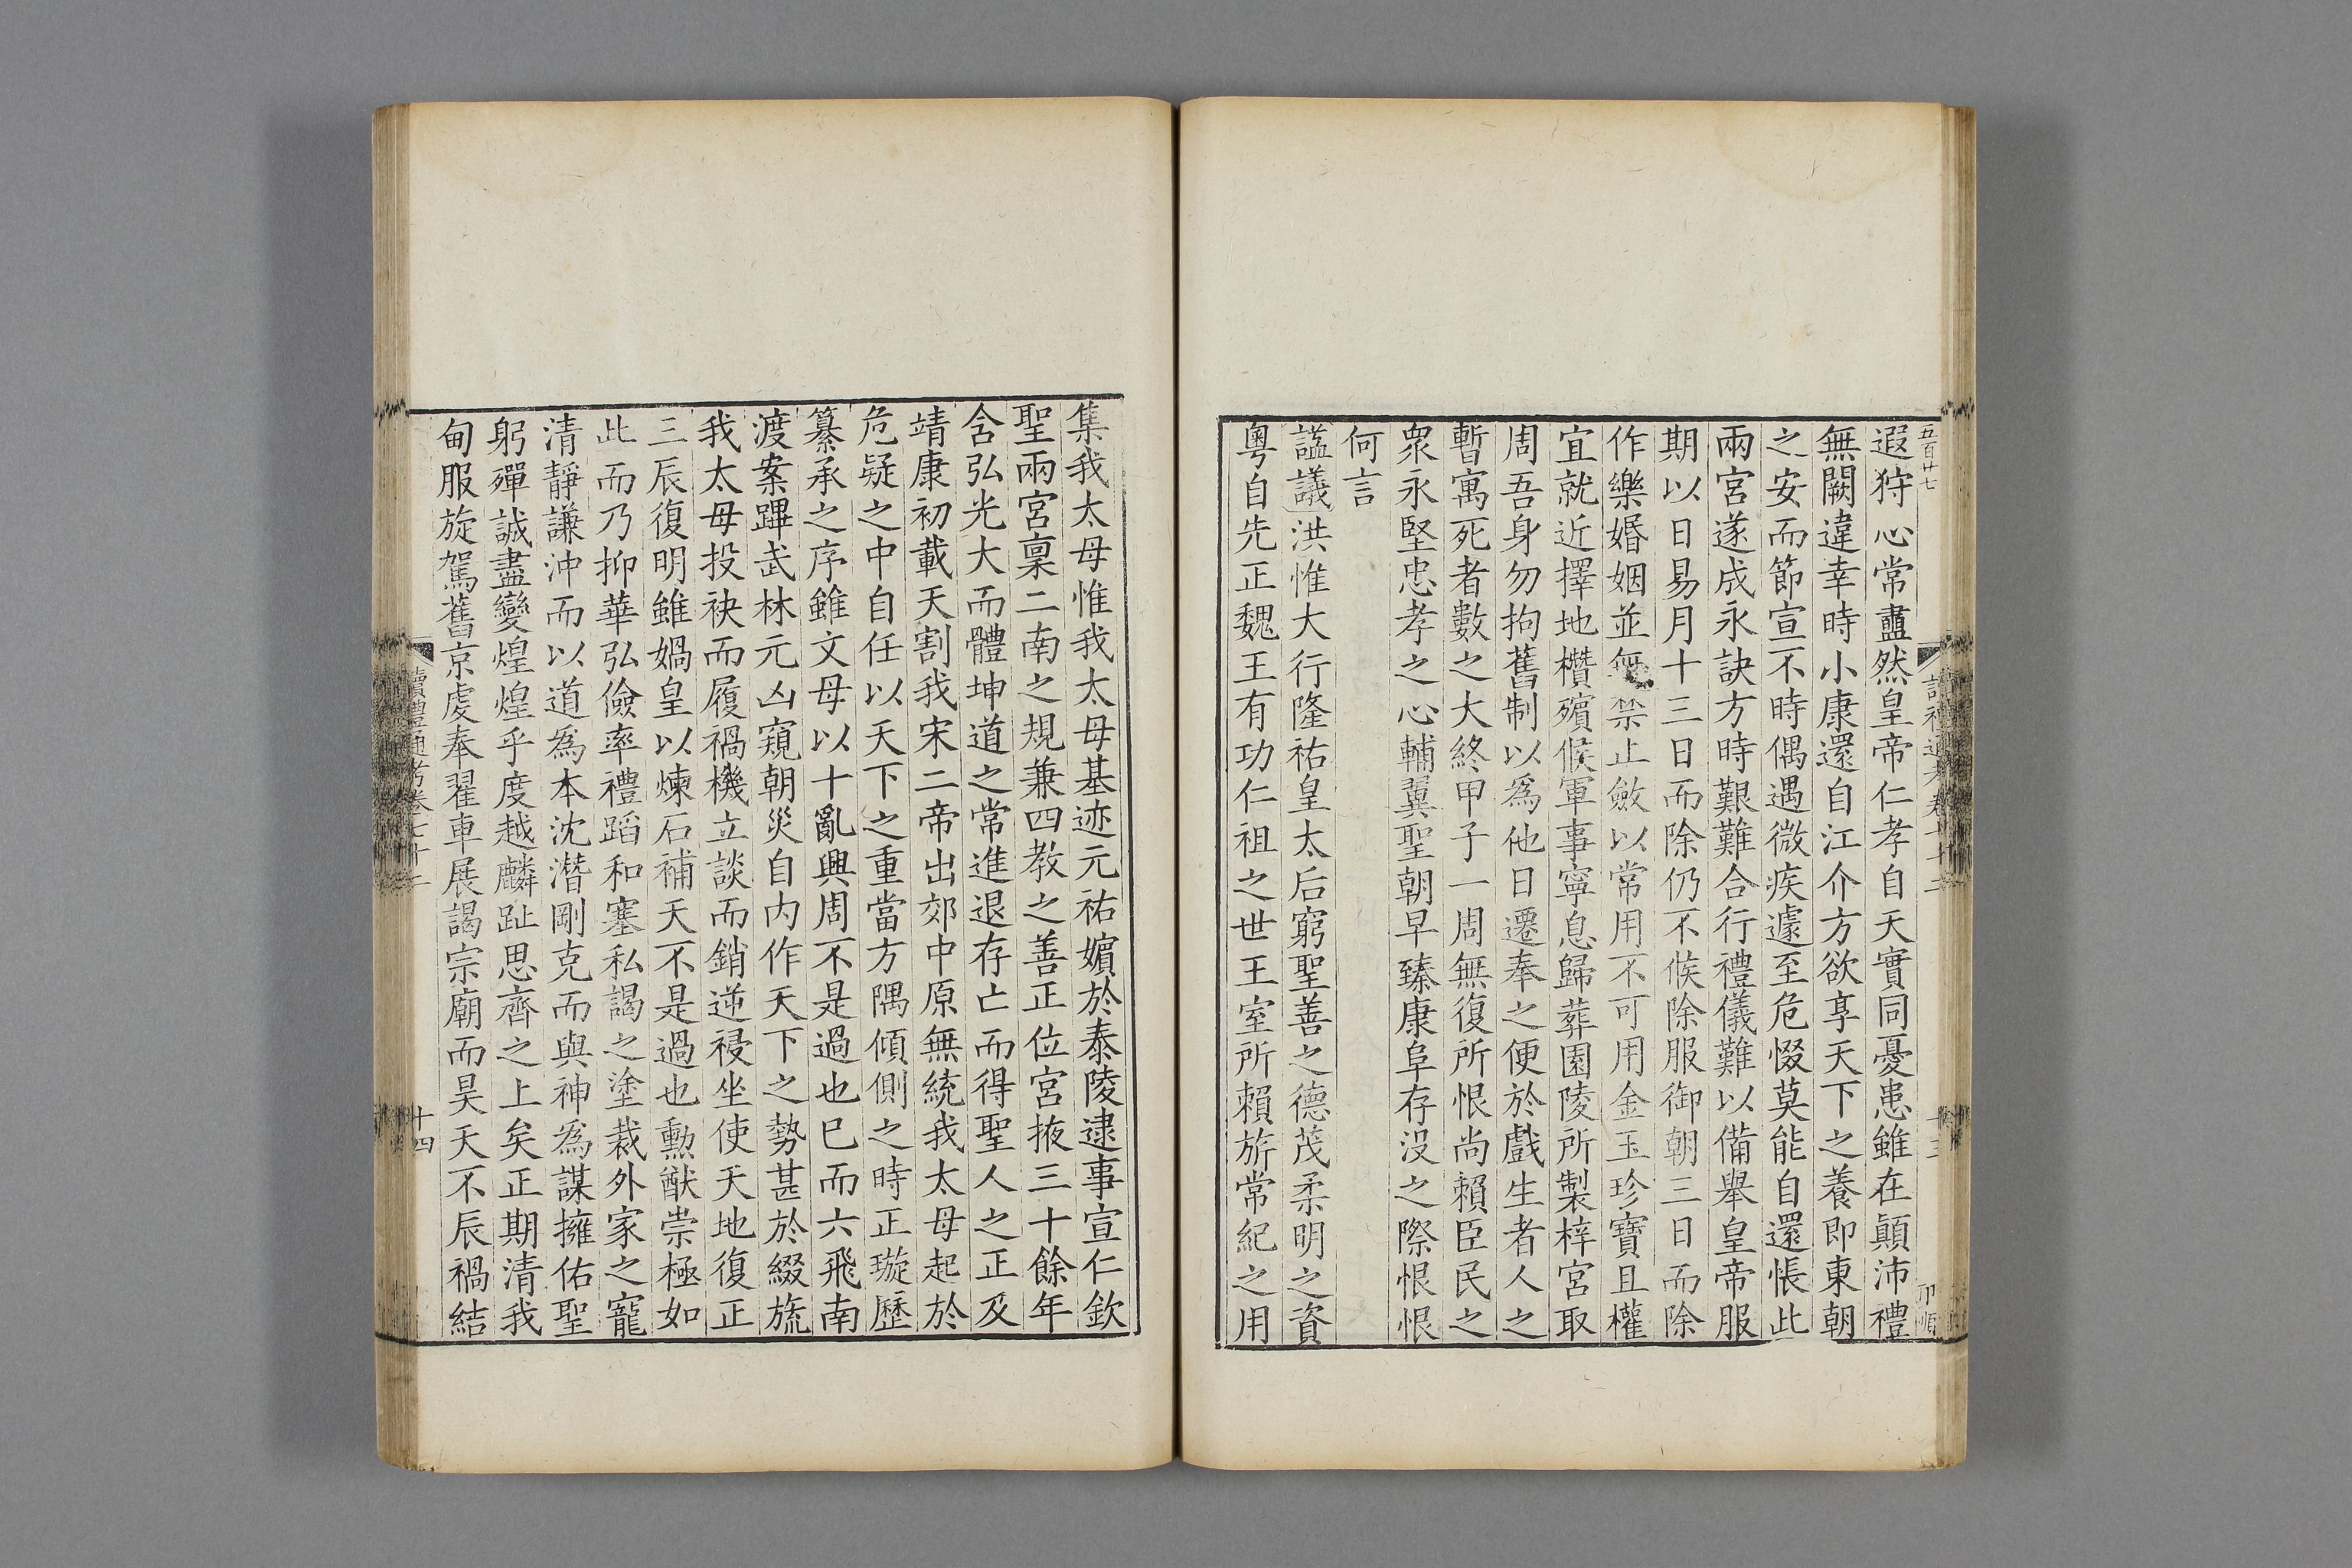 五百廿七
遐狩心常衋然皇帝仁孝自天實同憂患雖在顚沛禮
無闕違幸時小康還自江介方欲享天下之養即東朝
之安而節宣不時偶遇微疾遽至危惙莫能自還悵此
兩宮遂成永訣方時艱難合行禮儀難以備舉皇帝服
期以日易月十三日而除仍不候除服御朝三日而除
作樂婚姻並無禁止斂以常用不可用金玉珍寶且權
宜就近擇地欑殯候軍事寧息歸葬園陵所製梓宮取
周吾身勿拘舊制以爲他日遷奉之便於戲生者人之
暫寓死者數之大終甲子一周無復所恨尚賴臣民之
衆永堅忠孝之心輔翼聖朝早臻康阜存沒之際恨恨
何言
諡議洪惟大行隆祐皇太后窮聖善之德茂柔明之資
粵自先正魏王有功仁祖之世王室所賴旂常紀之用
集我太母惟我太母基迹元祐嬪於泰陵逮事宣仁欽
聖兩宮稟二南之規兼四教之善正位宮掖三十餘年
含弘光大而體坤道之常進退存亡而得聖人之正及
靖康初載天割我宋二帝出郊中原無統我太母起於
危疑之中自任以天下之重當方隅傾側之時正璇歷
纂承之序雖文母以十亂興周不是過也已而六飛南
渡案蹕武林元凶窺朝災自內作天下之勢甚於綴旒
我太母投袂而履禍機立談而銷逆祲坐使天地復正
三辰復明雖媧皇以煉石補天不是過也勲猷崇極如
此而乃抑華弘儉率禮蹈和塞私謁之塗裁外家之寵
清靜謙沖而以道爲本沈潛剛克而與神爲謀擁佑聖
躬殫誠盡變煌煌乎度越麟趾思齊之上矣正期清我
甸服旋駕舊京虔奉翟車展謁宗廟而昊天不辰禍結
讀禮通考卷七十二
十四